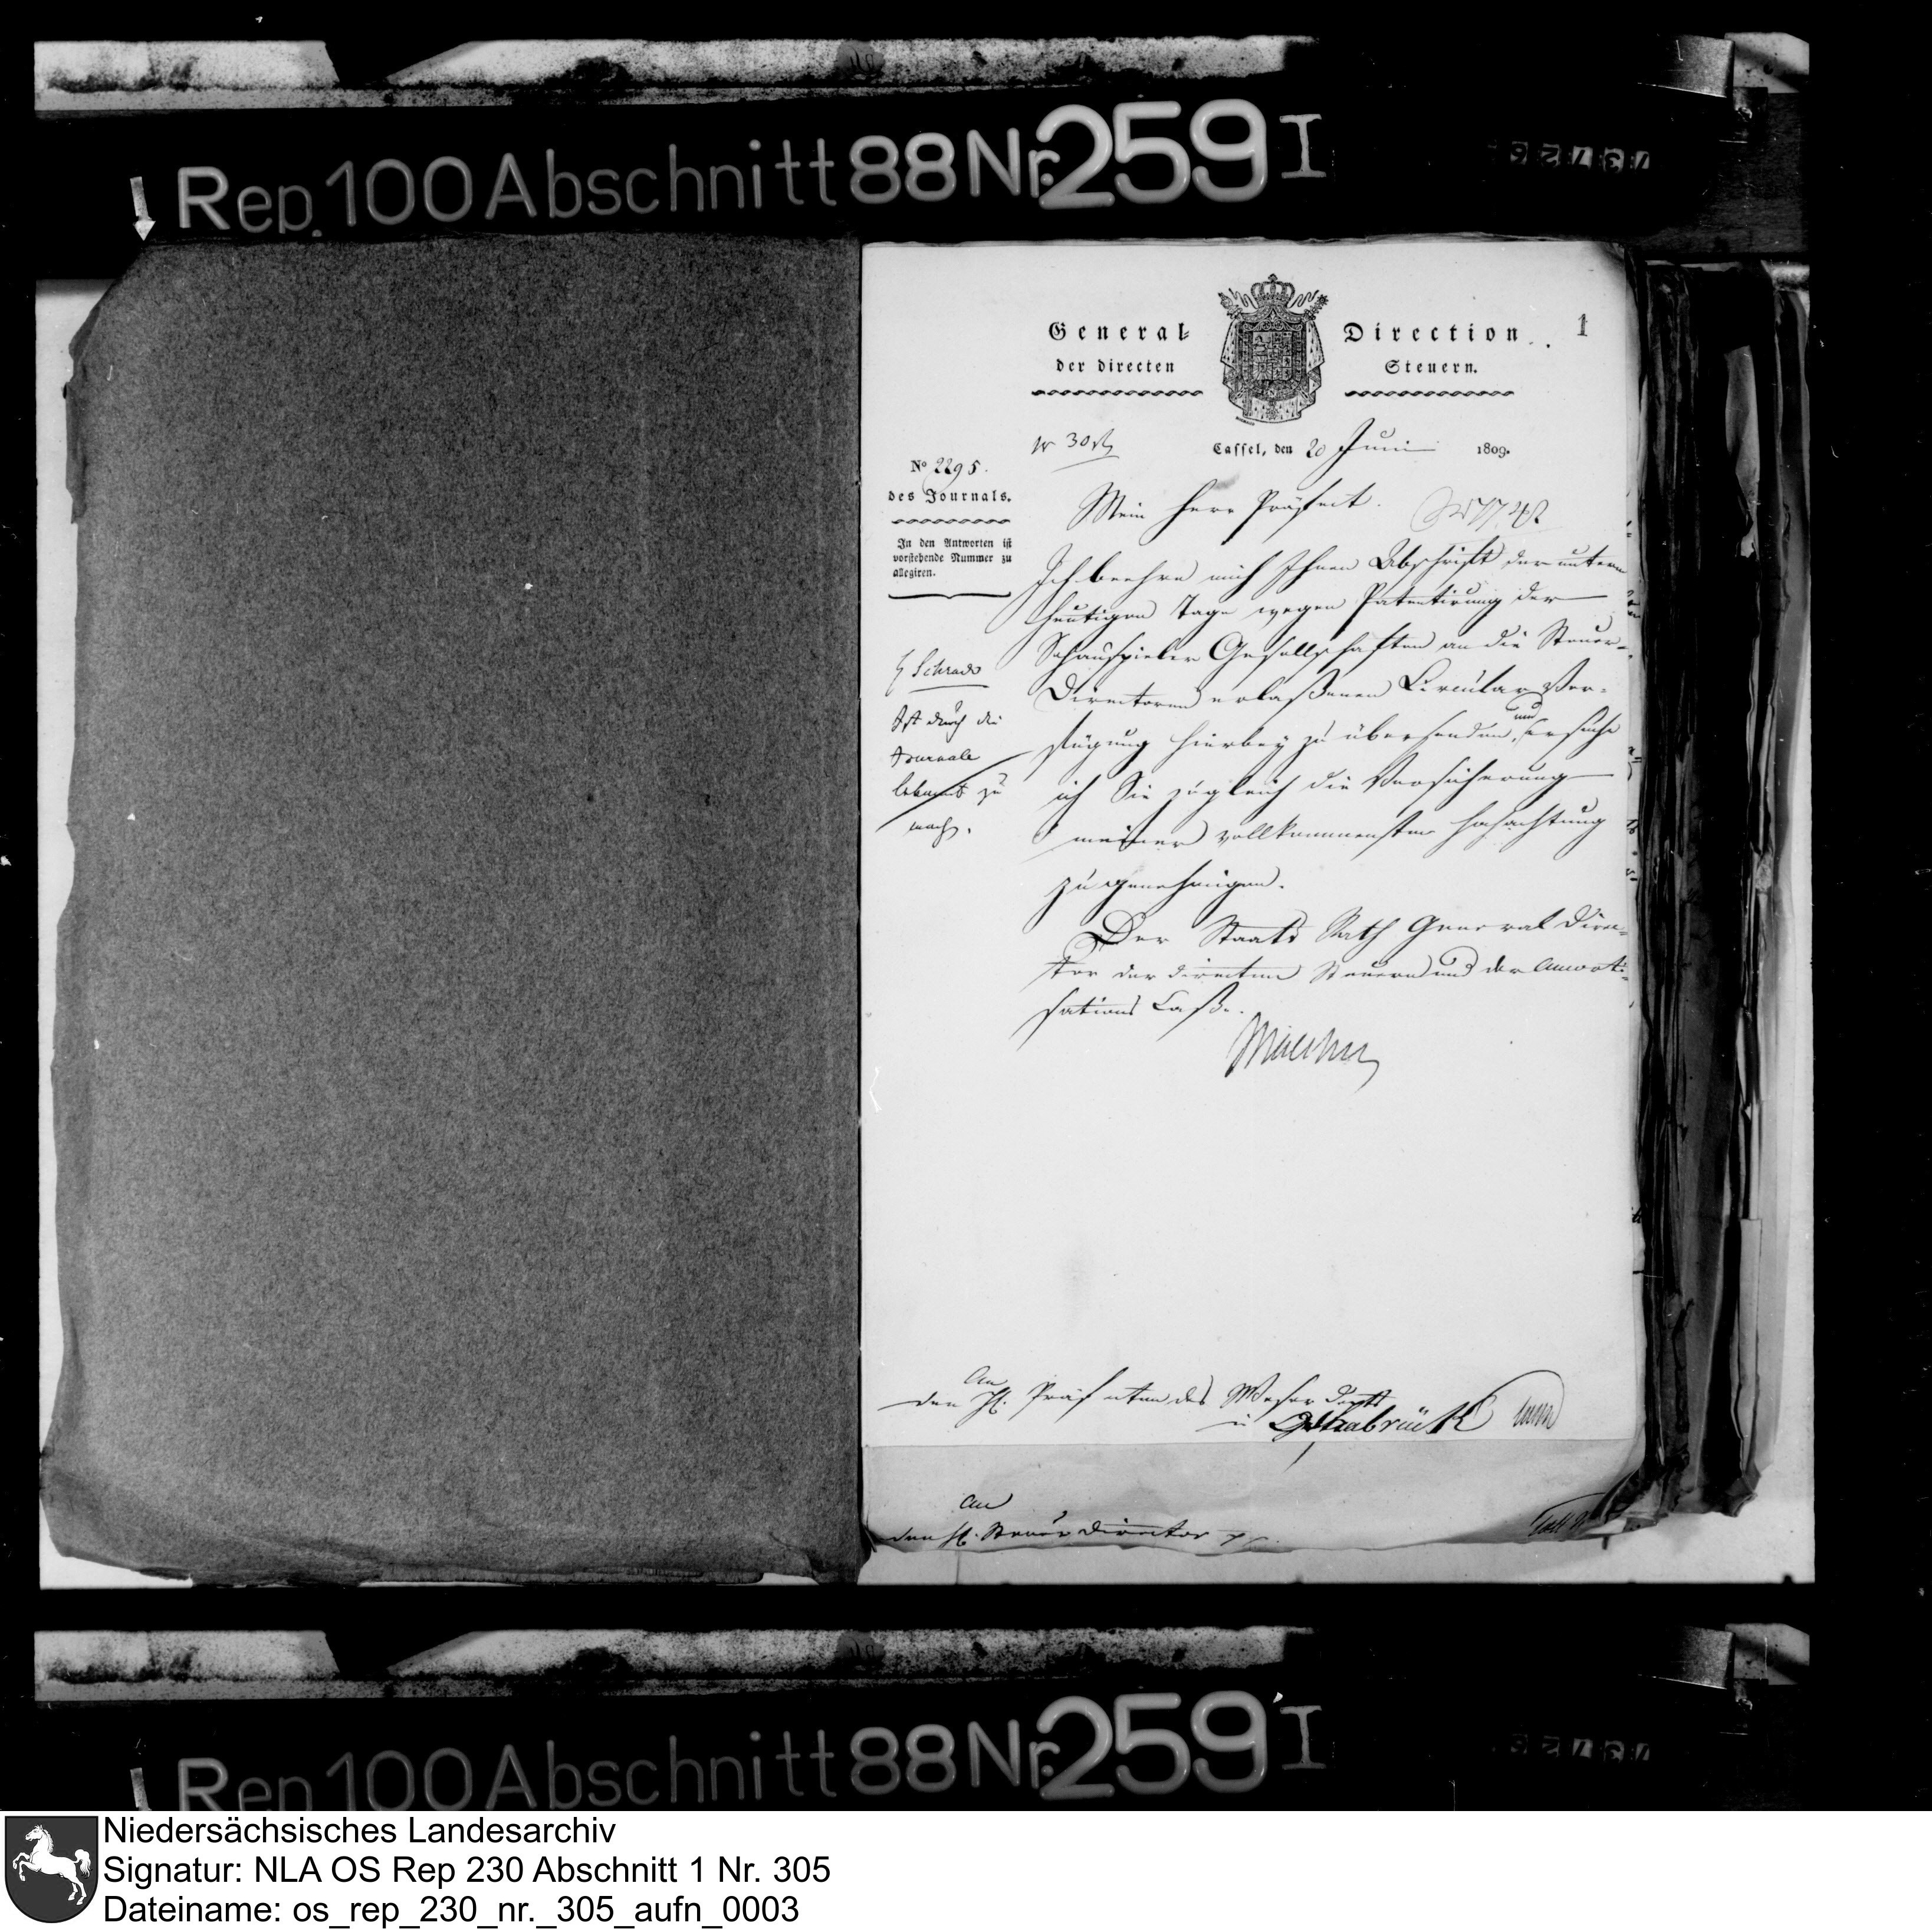 Rep. 100 Abschnitt 88 Nr. 259 I
General-Direction
der directen Steuern.
1
Cassel, den 20 Juni 1809.
No 2295.
des Journals.
In den Antworten ist
vorstehende Nummer zu
allegiren.
Mein Herr Präfect.
Ich beehre mich Ihnen Abschrift der unterm
heutigen Tage wegen Patentirung der
Schauspieler Gesellschaften an die Steuer-
Directoren erlaßenen Circular Ver-
fügung hierbey zu übersenden, und ersuche
ich Sie zugleich die Versicherung
meiner vollkommensten Hochachtung
zu genehmigen.
Der Staats Rath General Direc-
tor der directen Steuern und der Amorti-
sations Casse.
H Schrader
Ist durch die
Journale
bekannt zu
mach.
An
den H. Präfecten des Weser Depts
in Osnabrück
An
den H. Steuer Director
Rep. 100 Abschnitt 88 Nr. 259 I
Niedersächsisches Landesarchiv
Signatur: NLA OS Rep 230 Abschnitt 1 Nr. 305
Dateiname: os_rep_230_nr._305_aufn_0003